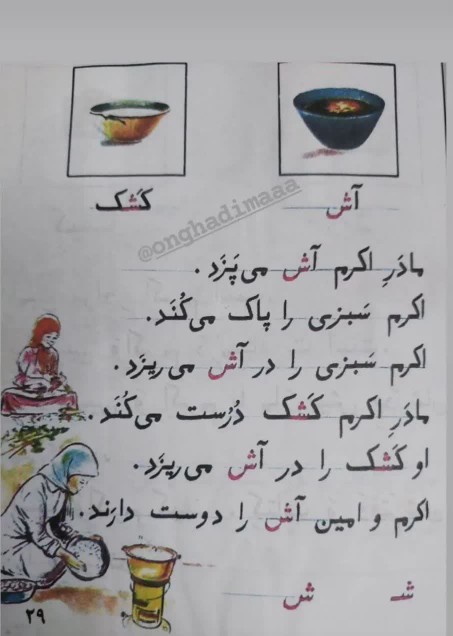 آش
کَشک
@onghadimaaa
مادَرِ اکرم آش می‌پَزَد.
اکرم سَبزی را پاک می‌کُنَد.
اکرم سَبزی را در آش می‌ریزَد.
مادَرِ اکرم کَشک دُرُست می‌کُنَد.
او کَشک را در آش می‌ریزَد.
اکرم و امین آش را دوست دارند.
شـ ش
۲۹